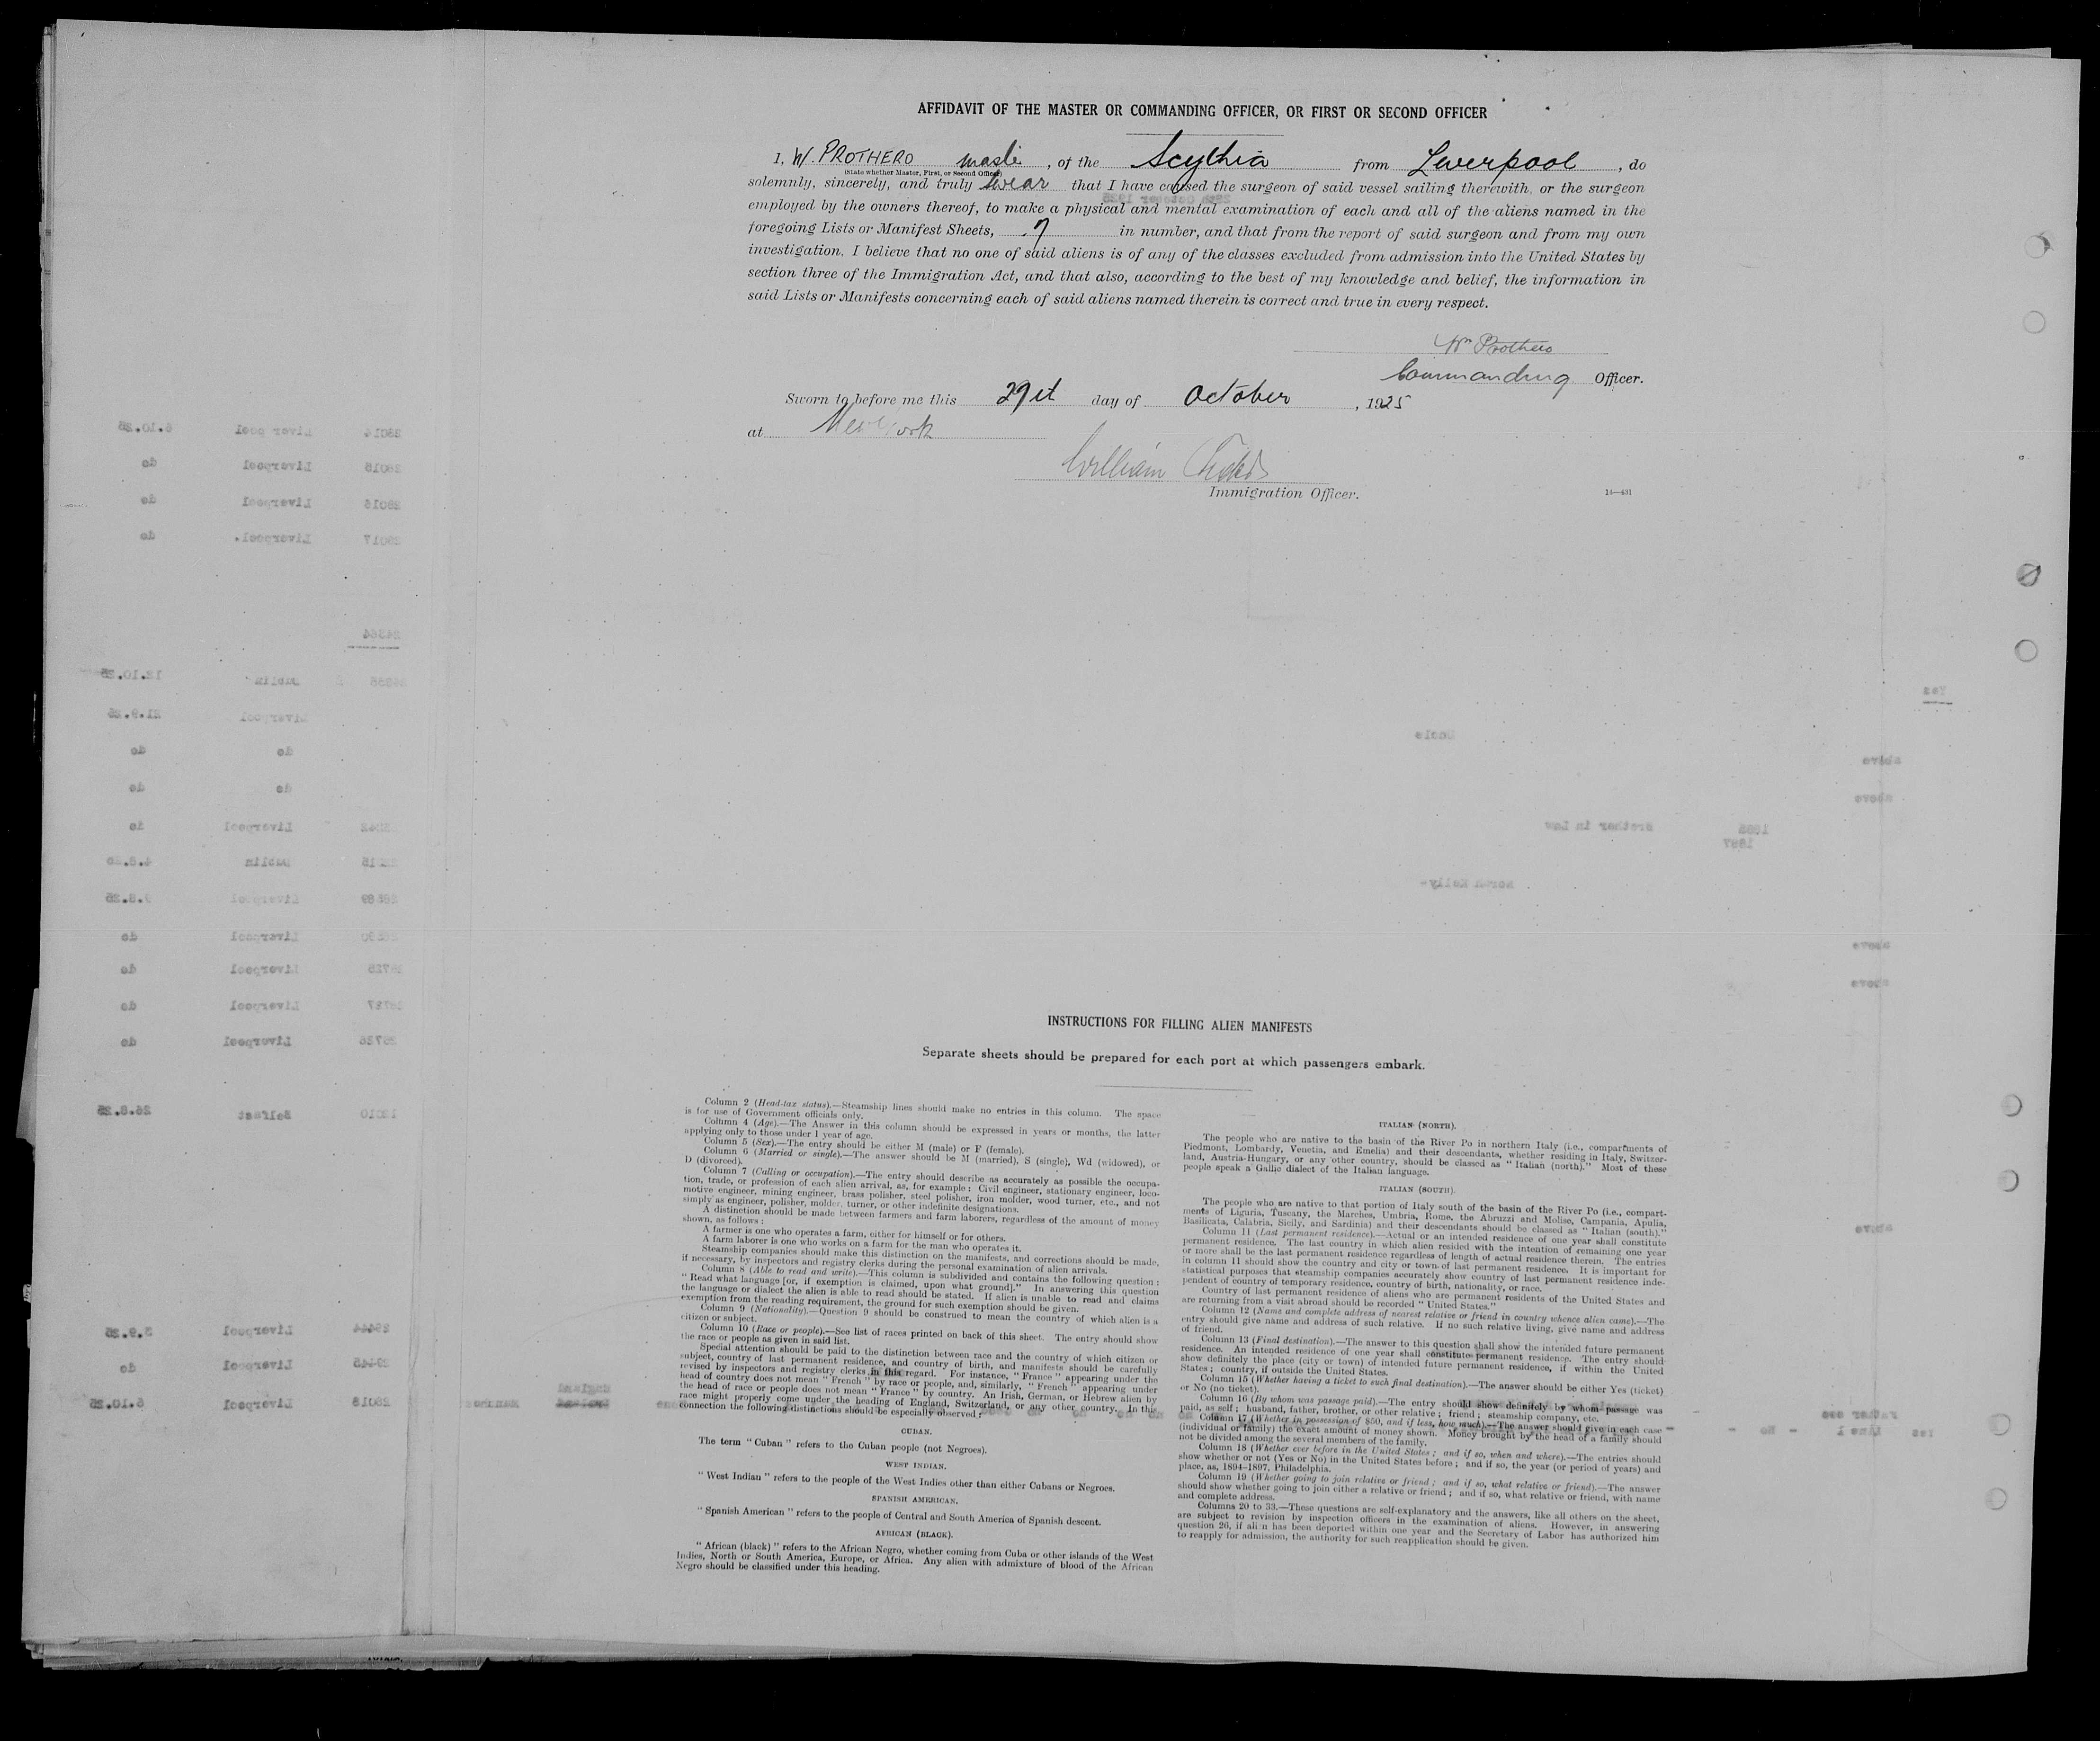 AFFIDAVIT OF THE MASTER OR COMMANDING OFFICER, OR FIRST OR SECOND OFFICER
I, W. PROTHERO , of the Scythia from Liverpool , do
(State whether Master, First, or Second Officer)
solemnly, sincerely, and truly swear that I have caused the surgeon of said vessel sailing therewith, or the surgeon
employed by the owners thereof, to make a physical and mental examination of each and all of the aliens named in the
foregoing Lists or Manifest Sheets, 7 in number, and that from the report of said surgeon and from my own
investigation, I believe that no one of said aliens is of any of the classes excluded from admission into the United States by
section three of the Immigration Act, and that also, according to the best of my knowledge and belief, the information in
said Lists or Manifests concerning each of said aliens named therein is correct and true in every respect.
Wm Prothero
Commanding Officer.
Sworn to before me this day of October , 1925
at New York
William
Immigration Officer.
14—431
INSTRUCTIONS FOR FILLING ALIEN MANIFESTS
Separate sheets should be prepared for each port at which passengers embark.
Column 2 (Head-tax status).—Steamship lines should make no entries in this column. The space
is for use of Government officials only.
Column 4 (Age).—The Answer in this column should be expressed in years or months, the latter
applying only to those under 1 year of age.
Column 5 (Sex).—The entry should be either M (male) or F (female).
Column 6 (Married or single).—The answer should be M (married), S (single), Wd (widowed), or
D (divorced).
Column 7 (Calling or occupation).—The entry should describe as accurately as possible the occupa-
tion, trade, or profession of each alien arrival, as, for example: Civil engineer, stationary engineer, loco-
motive engineer, mining engineer, brass polisher, steel polisher, iron molder, wood turner, etc., and not
simply as engineer, polisher, molder, turner, or other indefinite designations.
A distinction should be made between farmers and farm laborers, regardless of the amount of money
shown, as follows:
A farmer is one who operates a farm, either for himself or for others.
A farm laborer is one who works on a farm for the man who operates it.
Steamship companies should make this distinction on the manifests, and corrections should be made,
if necessary, by inspectors and registry clerks during the personal examination of alien arrivals.
Column 8 (Able to read and write).—This column is subdivided and contains the following question:
"Read what language [or, if exemption is claimed, upon what ground]." In answering this question
the language or dialect the alien is able to read should be stated. If alien is unable to read and claims
exemption from the reading requirement, the ground for such exemption should be given.
Column 9 (Nationality).—Question 9 should be construed to mean the country of which alien is a
citizen or subject.
Column 10 (Race or people).—See list of races printed on back of this sheet. The entry should show
the race or people as given in said list.
Special attention should be paid to the distinction between race and the country of which citizen or
subject, country of last permanent residence, and country of birth, and manifests should be carefully
revised by inspectors and registry clerks in this regard. For instance, "France" appearing under the
head of country does not mean "French" by race or people, and, similarly, "French" appearing under
the head of race or people does not mean "France" by country. An Irish, German, or Hebrew alien by
race might properly come under the heading of England, Switzerland, or any other country. In this
connection the following distinctions should be especially observed:
CUBAN.
The term "Cuban" refers to the Cuban people (not Negroes).
WEST INDIAN.
"West Indian" refers to the people of the West Indies other than either Cubans or Negroes.
SPANISH AMERICAN.
"Spanish American" refers to the people of Central and South America of Spanish descent.
AFRICAN (BLACK).
"African (black)" refers to the African Negro, whether coming from Cuba or other islands of the West
Indies, North or South America, Europe, or Africa. Any alien with admixture of blood of the African
Negro should be classified under this heading.
ITALIAN (NORTH).
The people who are native to the basin of the River Po in northern Italy (i.e., compartments of
Piedmont, Lombardy, Venetia, and Emelia) and their descendants, whether residing in Italy, Switzer-
land, Austria-Hungary, or any other country, should be classed as "Italian (north)." Most of these
people speak a Gallic dialect of the Italian language.
ITALIAN (SOUTH).
The people who are native to that portion of Italy south of the basin of the River Po (i.e., compart-
ments of Liguria, Tuscany, the Marches, Umbria, Rome, the Abruzzi and Molise, Campania, Apulia,
Basilicata, Calabria, Sicily, and Sardinia) and their descendants should be classed as "Italian (south)."
Column 11 (Last permanent residence).—Actual or an intended residence of one year shall constitute
permanent residence. The last country in which alien resided with the intention of remaining one year
or more shall be the last permanent residence regardless of length of actual residence therein. The entries
in column 11 should show the country and city or town of last permanent residence. It is important for
statistical purposes that steamship companies accurately show country of last permanent residence inde-
pendent of country of temporary residence, country of birth, nationality, or race.
Country of last permanent residence of aliens who are permanent residents of the United States and
are returning from a visit abroad should be recorded "United States."
Column 12 (Name and complete address of nearest relative or friend in country whence alien came).—The
entry should give name and address of such relative. If no such relative living, give name and address
of friend.
Column 13 (Final destination).—The answer to this question shall show the intended future permanent
residence. An intended residence of one year shall constitute permanent residence. The entry should
show definitely the place (city or town) of intended future permanent residence, if within the United
States; country, if outside the United States.
Column 15 (Whether having a ticket to such final destination).—The answer should be either Yes (ticket)
or No (no ticket).
Column 16 (By whom was passage paid).—The entry should show definitely by whom passage was
paid, as self; husband, father, brother, or other relative; friend; steamship company, etc.
Column 17 (Whether in possession of $50, and if less, how much).—The answer should give in each case
(individual or family) the exact amount of money shown. Money brought by the head of a family should
not be divided among the several members of the family.
Column 18 (Whether ever before in the United States; and if so, when and where).—The entries should
show whether or not (Yes or No) in the United States before; and if so, the year (or period of years) and
place, as, 1894-1897, Philadelphia.
Column 19 (Whether going to join relative or friend; and if so, what relative or friend).—The answer
should show whether going to join either a relative or friend; and if so, what relative or friend, with name
and complete address.
Columns 20 to 33.—These questions are self-explanatory and the answers, like all others on the sheet,
are subject to revision by inspection officers in the examination of aliens. However, in answering
question 26, if alien has been deported within one year and the Secretary of Labor has authorized him
to reapply for admission, the authority for such reapplication should be given.